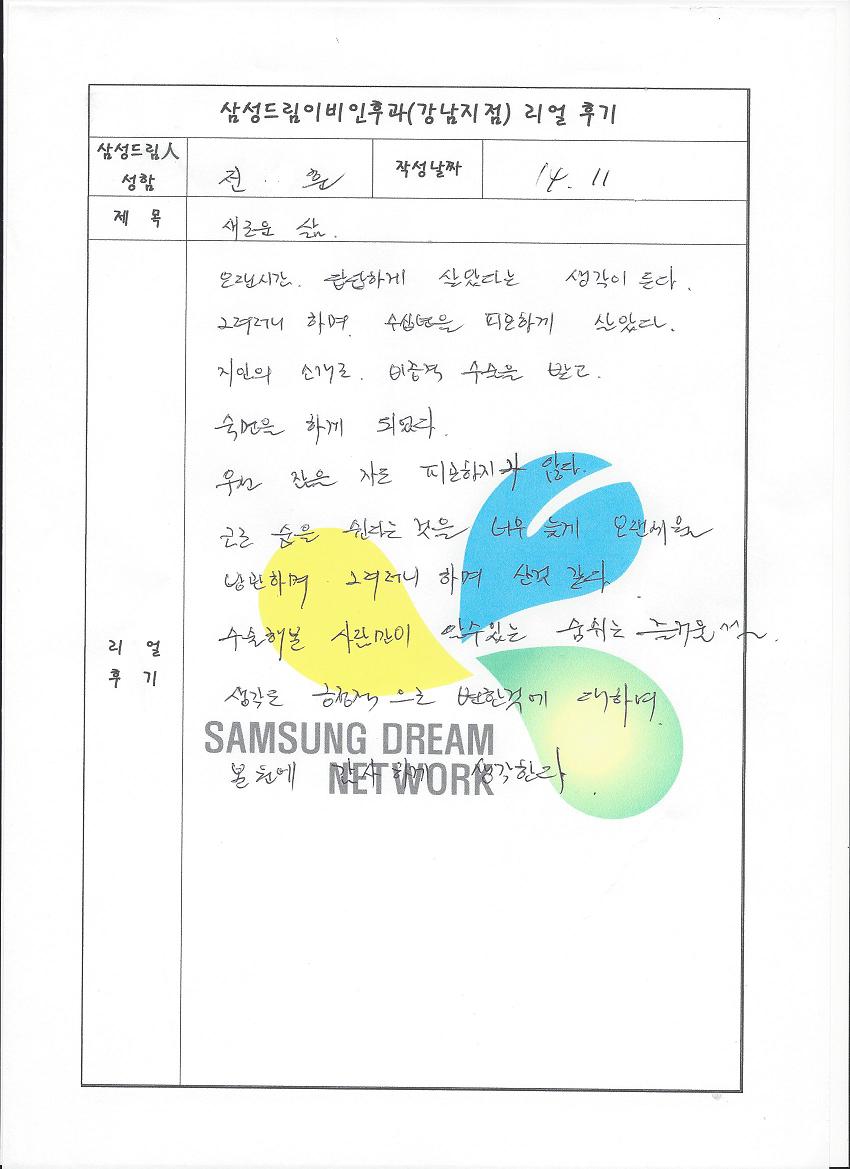 삼성드림이비인후과(강남지점) 리얼 후기
삼성드림人 성함 전 훈 작성날짜 14. 11
제 목 새로운 삶.
오랜시간. 답답하게 살았다는 생각이 든다.
그려러니 하며. 수십년을 피곤하게 살았다.
지인의 소개로. 비중격 수술을 받고.
숙면을 하게 되었다.
우선 잠을 자도 피곤하지가 않다.
코로 숨을 쉰다는 것을 너무 늦게 오랜세월
낭비하며 그려러니 하며 산것 같다.
수술해본 사람만이 알수있는 숨쉬는 즐거움
생각도 긍정적으로 변한것에 대하며.
본원에 감사하게 생각한다.
리 얼
후 기
SAMSUNG DREAM
NETWORK